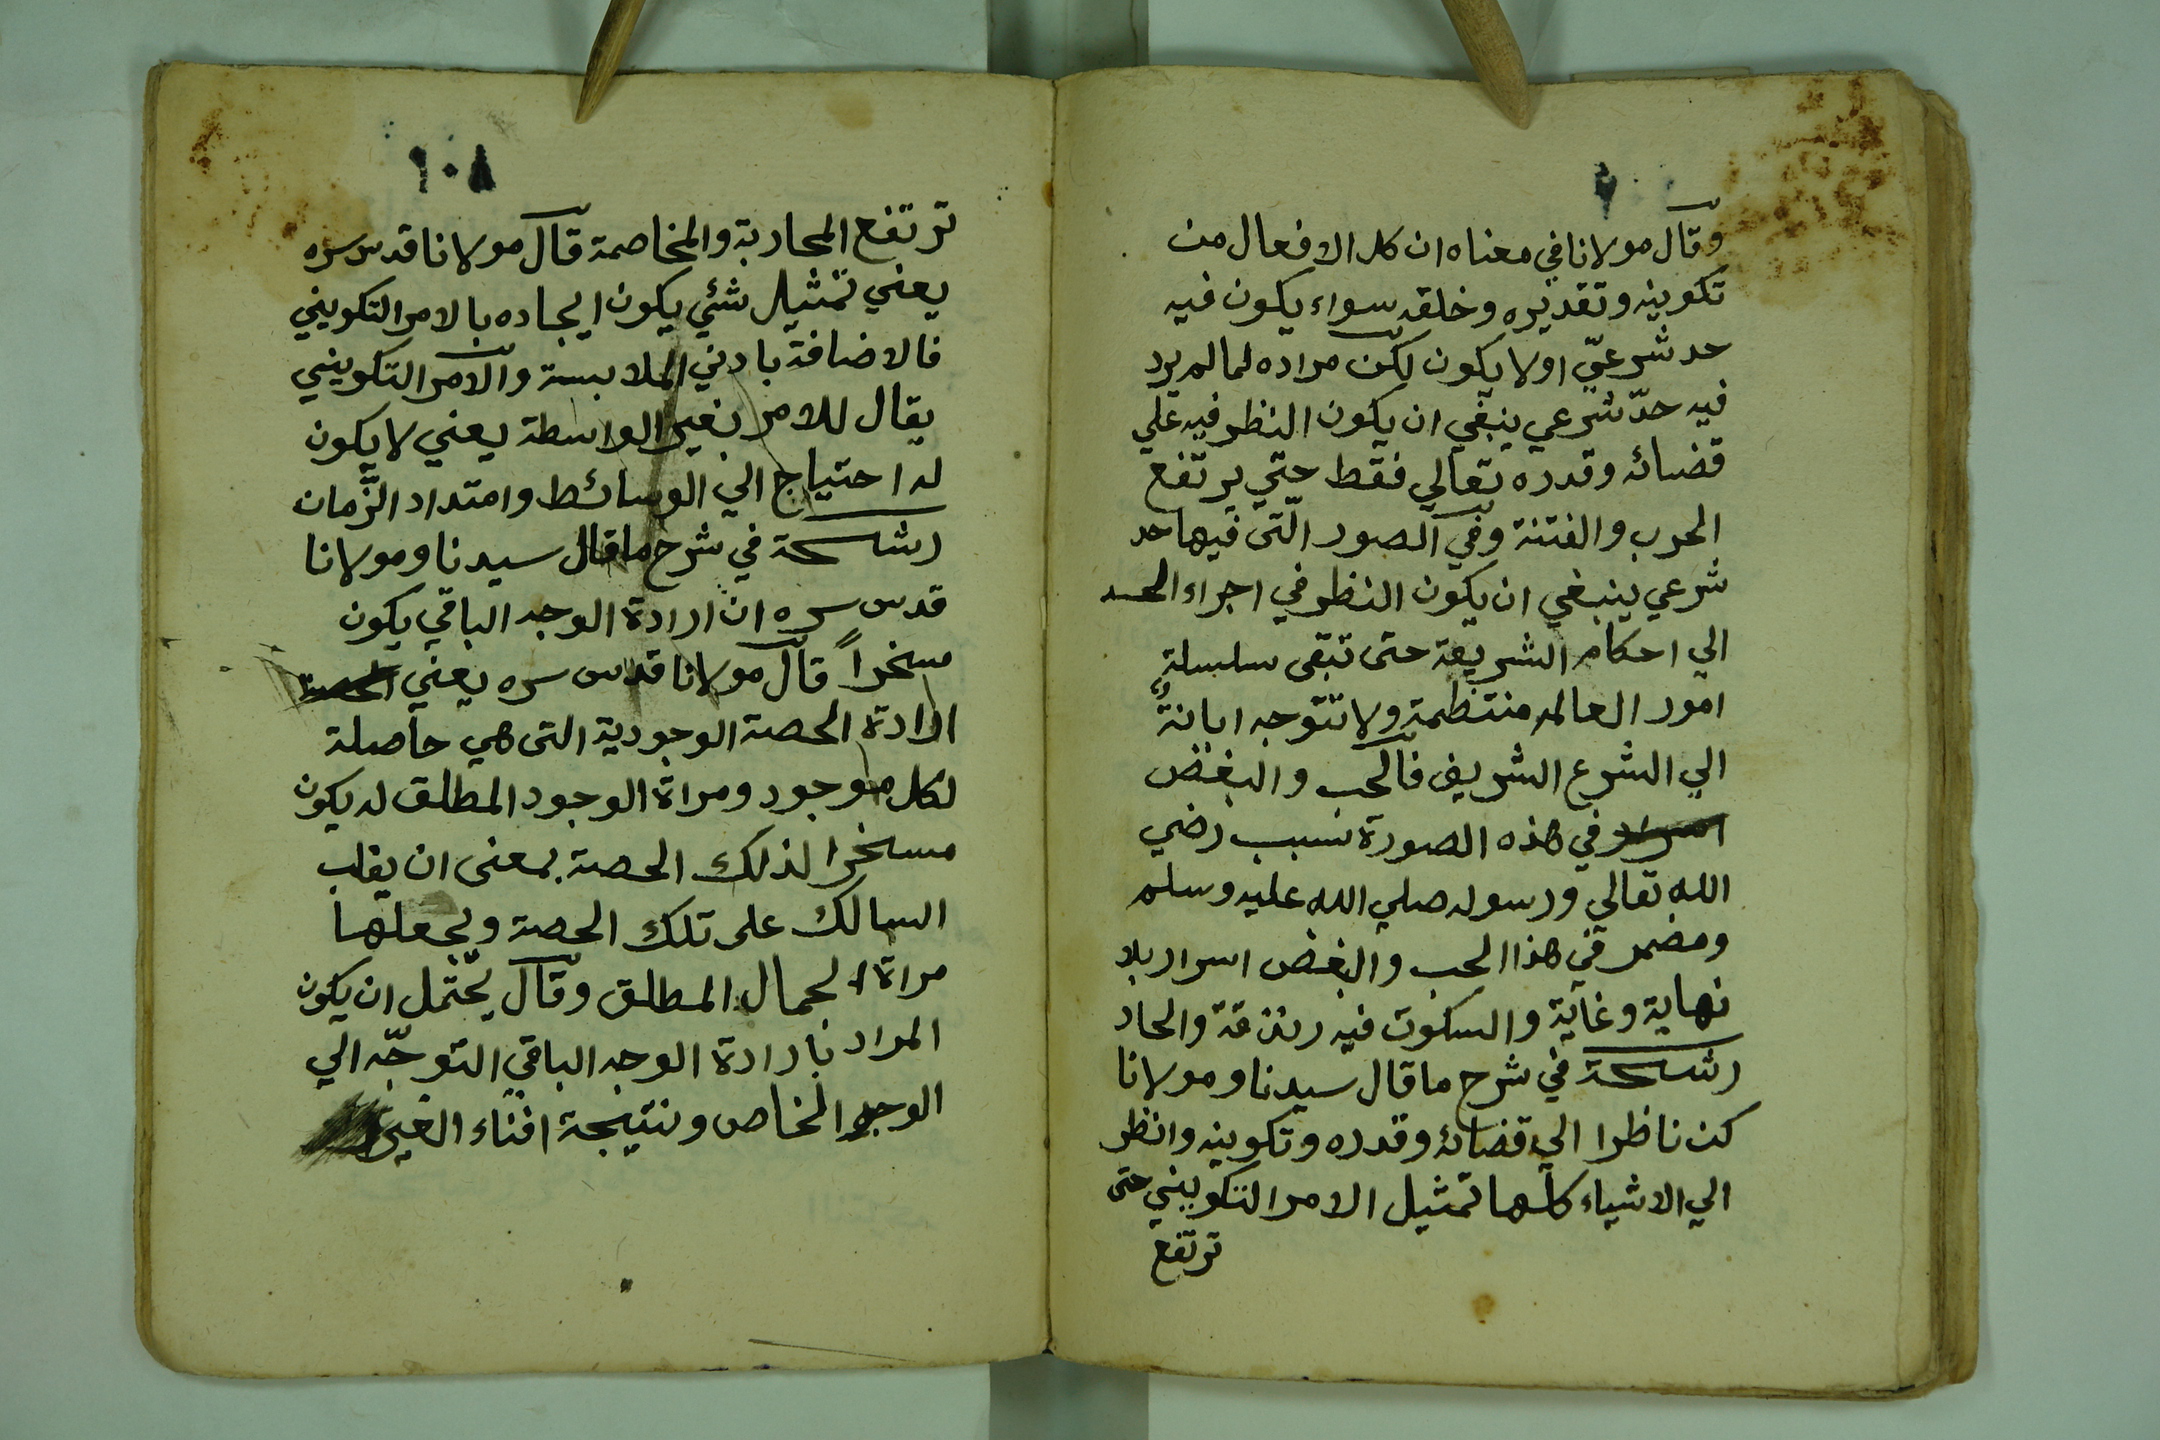 وقال مولانا في معناه ان كل الافعال من
تكوينه وتقديره وخلقه سواء يكون فيه
حد شرعيّ اولا يكون لكن مراده لما لم يرد
فيه حدّ شرعي ينبغي ان يكون النظر فيه علي
قضائه وقدره تعالي فقط حتي يرتفع
الحرب والفتنة وفي الصور الّتى فيها حد
شرعي ينبغي ان يكون النظر في اجراء الحد
الي احكام الشريعة حتى تبقى سلسلة
امور العالم منتظمة ولا تتوجه اهانةٌ
الي الشرع الشريف فالحب والبغض
في هذه الصورة نسبب رضي
الله تعالي ورسوله صلي الله عليه وسلم
ومضمر في هذا الحب والبغض اسرار بلا
نهاية وغاية والسكوت فيه زندقة والحاد
رشحة في شرح ما قال سيدنا ومولانا
كن ناظرا الي قضائه وقدره وتكوينه وانظر
الي الاشياء كلّها تمثيل الامر التكويني حتى
ترتفع
١٠٨
ترتفع المحاربة والمخاصمة قال مولانا قدس سره
يعني تمثيل شئي يكون ايجاده بالامر التكويني
فالاضافة بادني الملابسة والامر التكويني
يقال للامر بغير الواسطة يعني لا يكون
له احتياج الي الوسائط وامتداد الزّمان
رشحة في شرح ما قال سيدنا ومولانا
قدس سره ان ارادة الوجه الباقي يكون
مسخراً قال مولانا قدس سره يعني
ارادة الحصة الوجودية التى هي حاصلة
لكل موجود ومراة الوجود المطلق له يكون
مسخرا لذلك الحصة بمعنى ان يقلب
السالك على تلك الحصة ويجعلها
مراة الجمال المطلق وقال يحتمل ان يكون
المراد بارادة الوجه الباقي التوجّه الي
الوجه الخاص ونتيجة افناء الغير